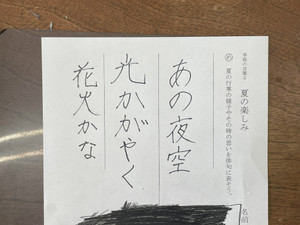 季節の言葉2
夏の楽しみ
め 夏の行事の様子やその時の思いを俳句に表そう。
あの夜空
光かがやく
花火かな
名前